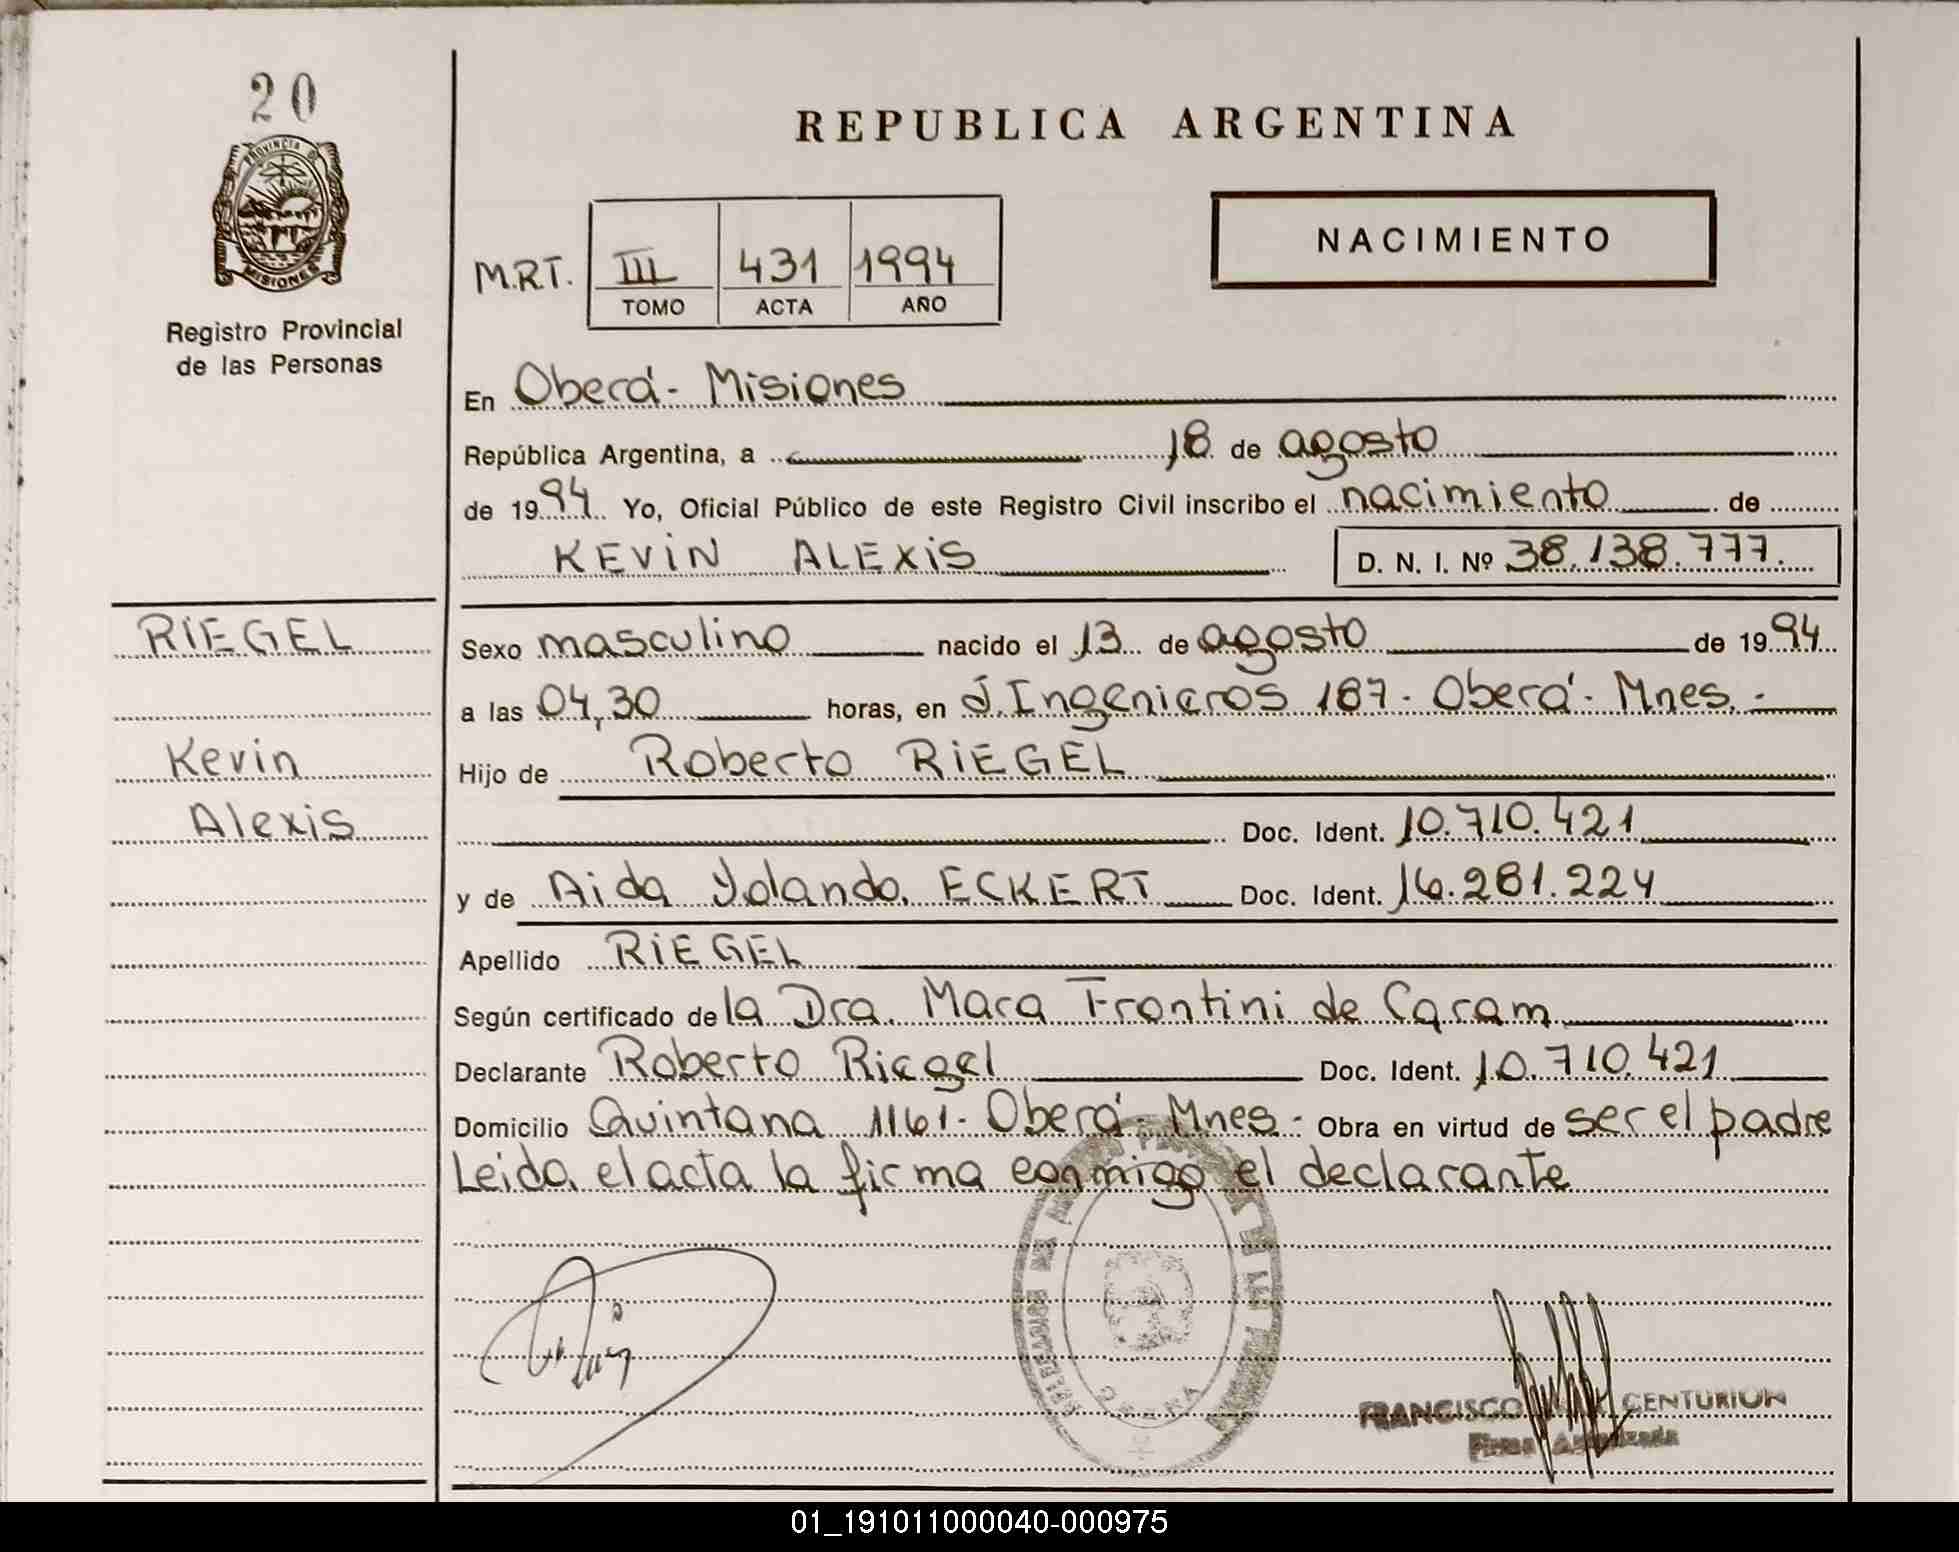 20
PROVINCIA D
MISIONES
Registro Provincial
de las Personas
REPUBLICA ARGENTINA
NACIMIENTO
M.R.T. III 431 1994
TOMO ACTA AÑO
En Oberá - Misiones
República Argentina, a 18 de agosto
de 1994 Yo, Oficial Público de este Registro Civil inscribo el nacimiento de
KEVIN ALEXIS D. N. I. Nº 38.138.777.
RIEGEL
Kevin
Alexis
Sexo masculino nacido el 13 de agosto de 1994
a las 04,30 horas, en J. Ingenieros 187 - Oberá - Mnes. -
Hijo de Roberto RIEGEL
Doc. Ident. 10.710.421
y de Aida Yolanda ECKERT Doc. Ident. 16.281.224
Apellido RIEGEL
Según certificado de la Dra. Mara Frontini de Caram
Declarante Roberto Riegel Doc. Ident. 10.710.421
Domicilio Quintana 1161 - Oberá - Mnes - Obra en virtud de ser el padre
Leida el acta la firma conmigo el declarante
FRANCISCO CENTURION
Firma Autorizada
01_191011000040-000975